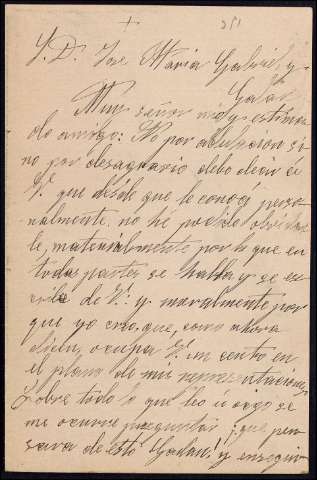 + 251
S. D. José Maria Gabriel y
Galán
Muy señor mio y estima
do amigo: No por adulacion si
no por desagravio debo decir á
V. que desde que le conocí perso
nalmente no hé podido olvidar
le, materialmente por que en
todas partes se habla y se es
cribe de V. y moralmente por
que yo creo que, como ahora
dicen, ocupa V. un centro en
el plano de mis representaciones
Sobre todo lo que leo ú oigo se
me ocurre preguntar ¿que pen
sara de esto Galan? y enseguir